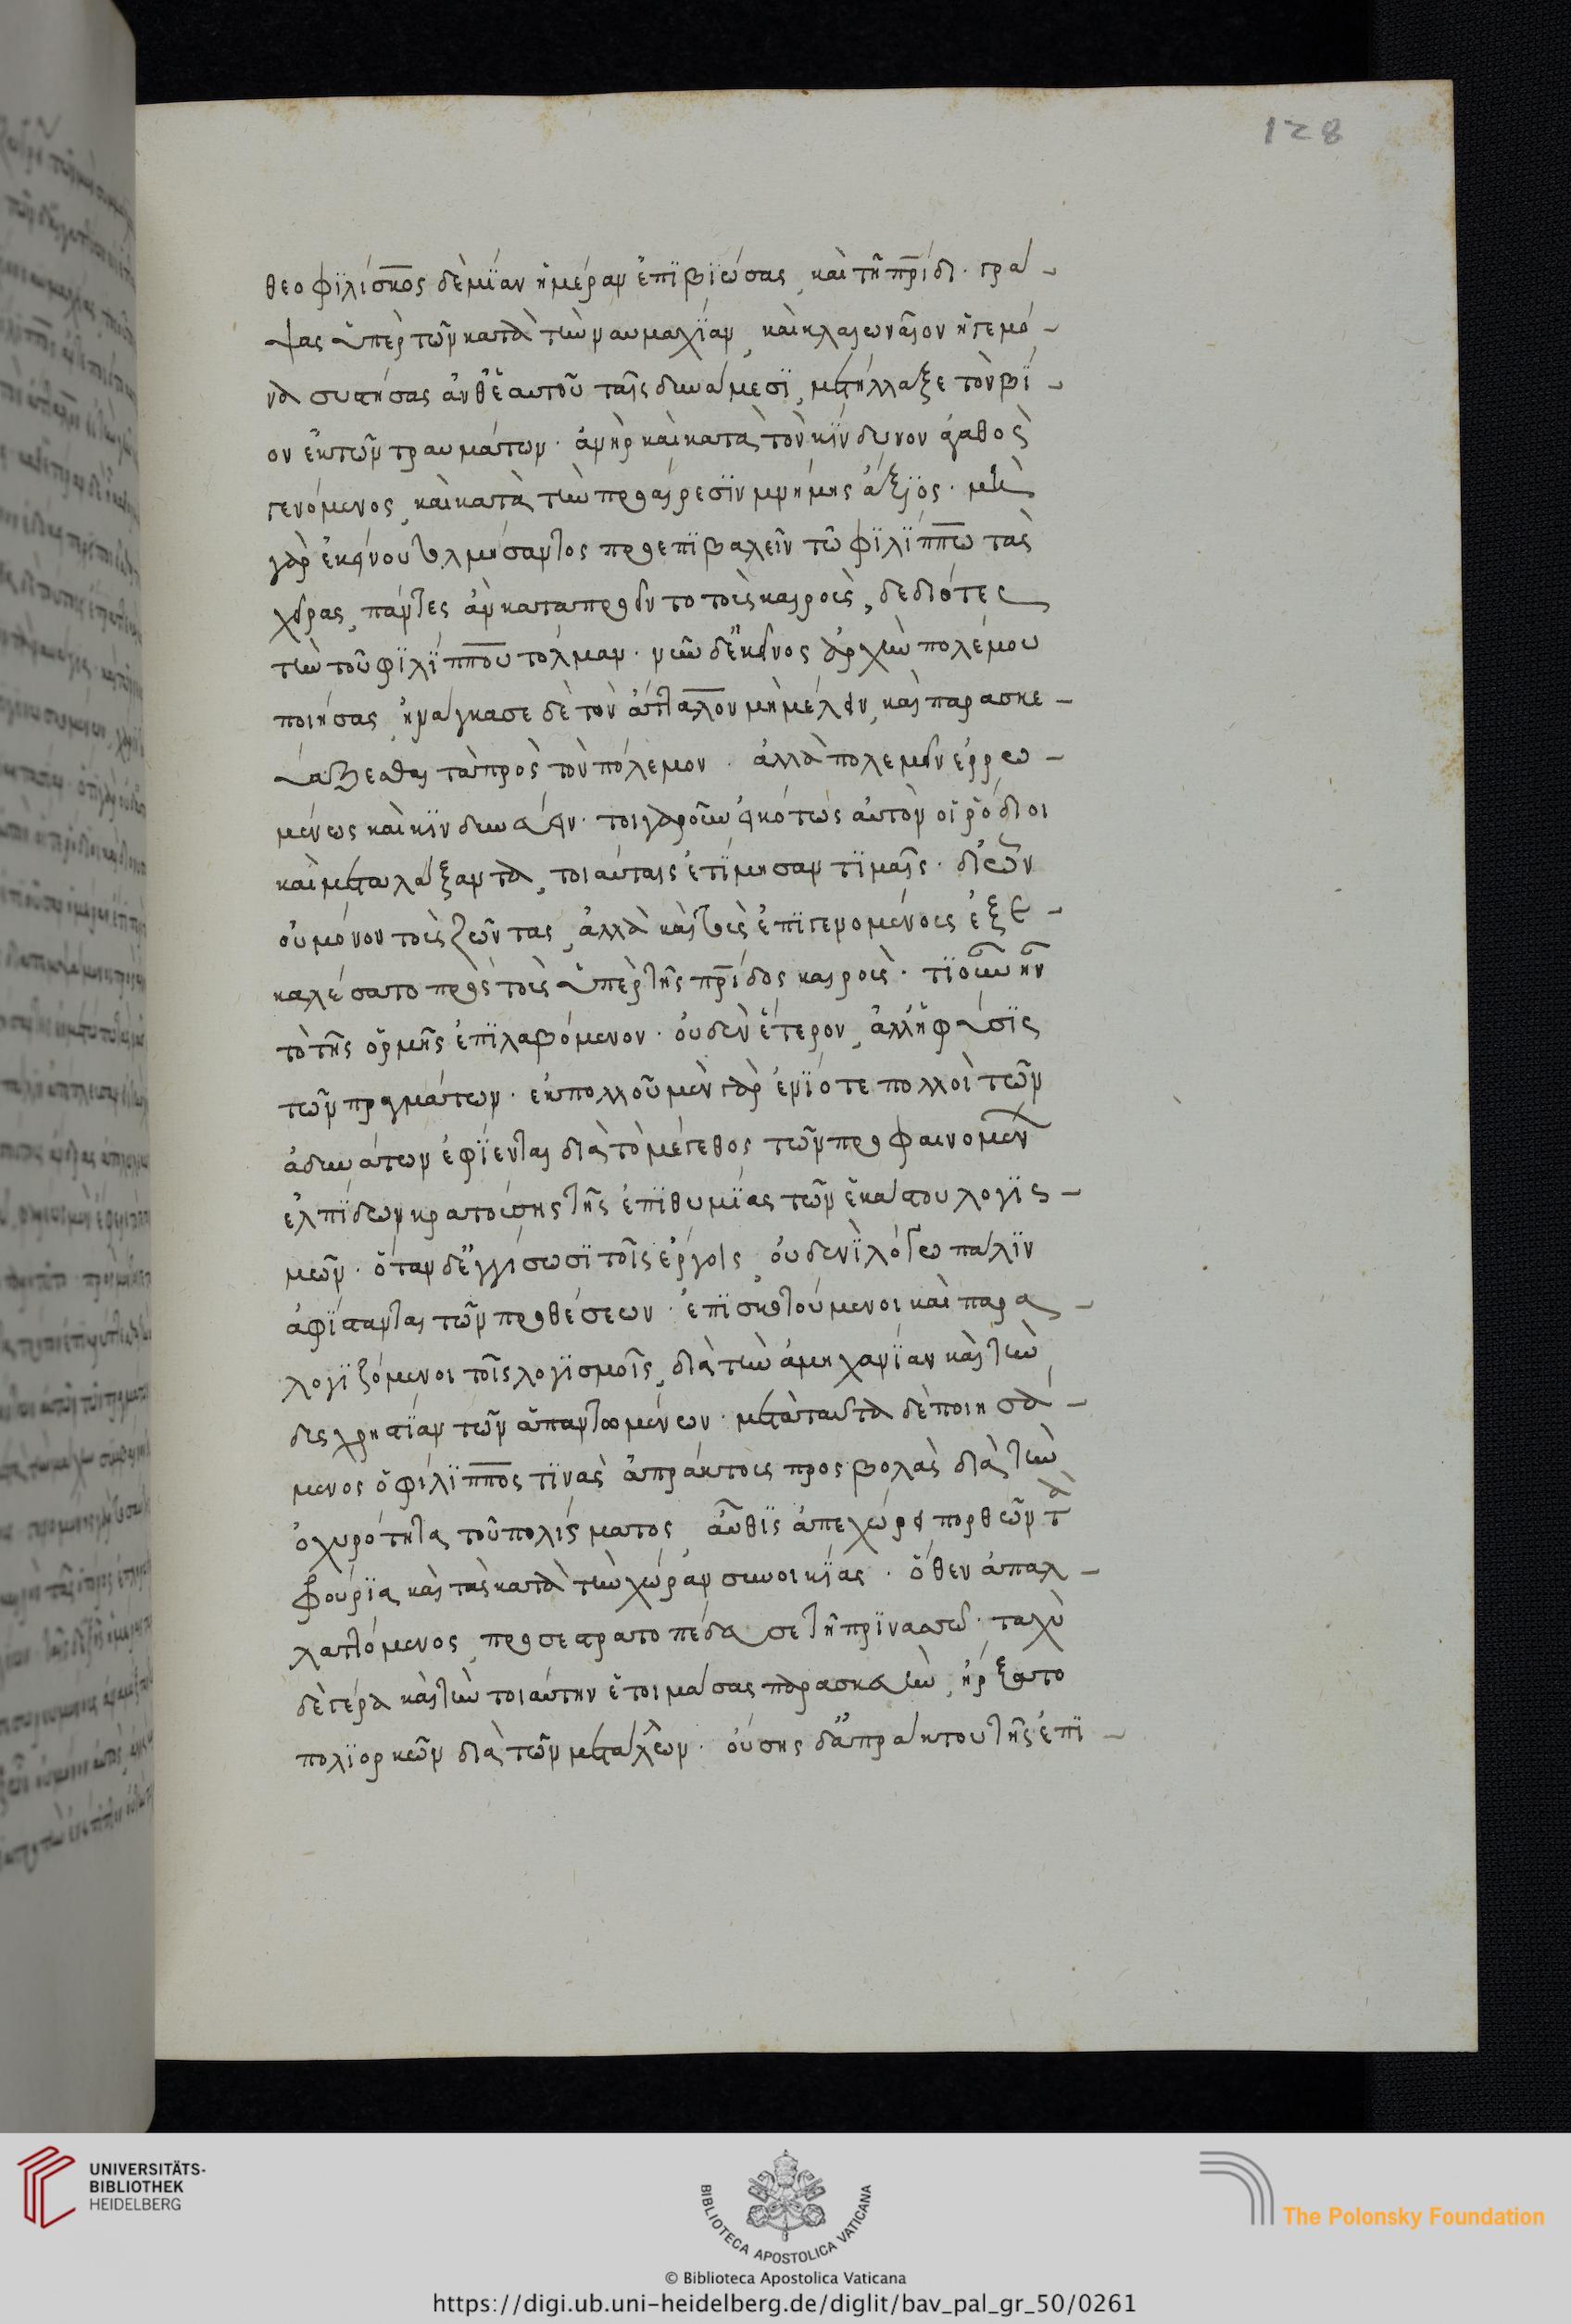 128
θεοφϊλίσκος δὲ μίαν ἡμέραν ἐπϊβϊώσας, καὶ τῆ πρίδι· γρά-
ψας ὑπὲρ τῶν κατὰ τὴν ναυμαχΐαν, καὶ κλαιωναῖον ἡγεμό-
να συστήσας ἀνθ' ἑαυτοῦ ταῖς δυνάμεσϊ, μετήλλαξε τὸν βΐ-
ον ἐκ τῶν τραυμάτων· ἀνὴρ καὶ κατὰ τὸν κΐνδυνον ἀγαθὸς
γενόμενος, καὶ κατὰ τὴν προαίρεσϊν μνήμης ἄξϊος· μὴ
γὰρ ἐκείνου τολμήσαντος προεπϊβαλεῖν τῶ φϊλΐππω τὰς
χεῖρας, πάντες ἂν καταπροεῖντο τοὺς καιροὺς, δεδιότες
τὴν τοῦ φϊλΐππου τόλμαν· νῦν δ' ἐκεῖνος ἀρχὴν πολέμου
ποιήσας, ἠνάγκασε δὲ τὸν ἄτταλον μὴ μέλειν, καὶ παρασκε-
υάζεσθαι τὰ πρὸς τὸν πόλεμον· ἀλλὰ πολεμεῖν ἐρρω-
μένως καὶ κϊνδυνεύειν· τοιγαροῦν εἰκότως αὐτὸν οἱ ῥόδιοι
καὶ μεταλάξαντα, τοιαύταις ἐτίμησαν τϊμαῖς· δι' ὧν
οὐ μόνον τοὺς ζῶντας, ἀλλὰ καὶ τοὺς ἐπϊγενομένους ἐξε-
καλέσατο πρὸς τοὺς ὑπὲρ τῆς πρίδος καιρούς· τϊ οὖν ἦν
τὸ τῆς ὁρμῆς ἐπϊλαβόμενον· οὐδὲν ἕτερον, ἀλλ' ἡ φύσϊς
τῶν πραγμάτων· ἐκ πολλοῦ μὲν γὰρ ἐνΐοτε πολλοὶ τῶν
ἀδυνάτων ἐφΐενται διὰ τὸ μέγεθος τῶν προφαινομένων
ἐλπΐδων κρατούσης τῆς ἐπϊθυμΐας τῶν ἑκάστου λογϊς-
μῶν· ὅταν δ' ἐγγίσωσϊ τοῖς ἔργοις, οὐδενῒ λόγω πάλϊν
ἀφΐστανται τῶν προθέσεων· ἐπϊσκοτούμενοι καὶ παρα-
λογϊζόμενοι τοῖς λογϊσμοῖς, διὰ τὴν ἀμηχανΐαν καὶ τὴν
δυσχρηστΐαν τῶν ἀπαντωμένων· μετὰ ταῦτα δὲ ποιησά-
μενος ὁ φίλϊππος τϊνὰς ἀπράκτους προσβολὰς διὰ τὴν
ὀχυρότητα τοῦ πολίσματος, αὖθϊς ἀπεχώρει πορθῶν τὰ
φρούρϊα καὶ τὰς κατὰ τὴν χώραν συνοικΐας· ὅθεν ἀπαλ-
λαττόμενος, προσεστρατοπέδευσε τῆ πρϊνασσῶ· ταχὺ
δὲ γέρα καὶ τὴν τοιαύτην ἑτοιμάσας παρασκευὴν, ἤρξατο
πολϊορκεῖν διὰ τῶν μετάλλων· οὔσης δ' ἀπράκτου τῆς ἐπϊ-
UNIVERSITÄTS-
BIBLIOTHEK
HEIDELBERG
BIBLIOTECA APOSTOLICA VATICANA
The Polonsky Foundation
© Biblioteca Apostolica Vaticana
https://digi.ub.uni-heidelberg.de/diglit/bav_pal_gr_50/0261